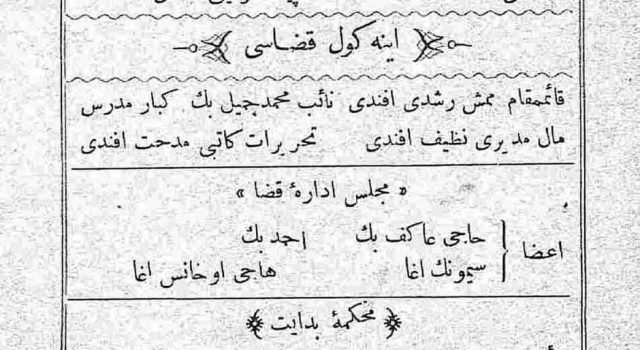 اینه كول قضاسی
قائممقام ممش رشدی افندی نائب محمدجمیل بك كبار مدرس
مال مدیری نظیف افندی تحریرات كاتبی مدحت افندی
« مجلس ادارهٔ قضا »
اعضا { حاجی عاكف بك احمد بك
سیمونك اغا هاجی اوخانس اغا
محكمهٔ بدایت